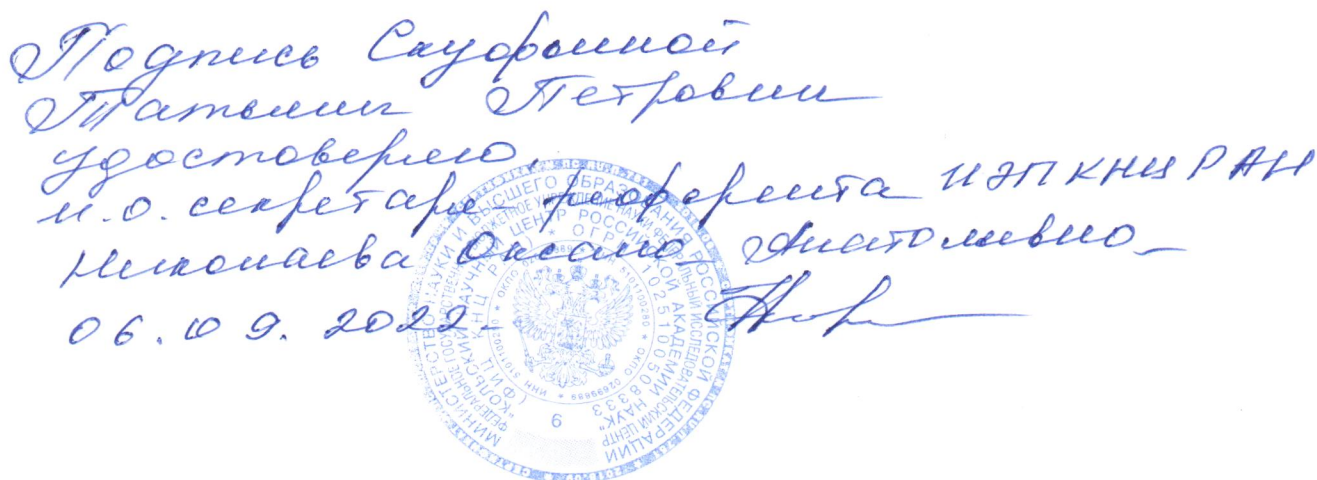 Подпись Скуфьиной
Татьяны Петровны
удостоверяю,
и.о. секретаря-референта ИЭП КНЦ РАН
Николаева Оксана Анатольевна
06.09.2022
МИНИСТЕРСТВО НАУКИ И ВЫСШЕГО ОБРАЗОВАНИЯ РОССИЙСКОЙ ФЕДЕРАЦИИ
ФЕДЕРАЛЬНЫЙ ИССЛЕДОВАТЕЛЬСКИЙ ЦЕНТР
"КОЛЬСКИЙ НАУЧНЫЙ ЦЕНТР РОССИЙСКОЙ АКАДЕМИИ НАУК"
(ФИЦ КНЦ РАН) * ОГРН 1025100508333
* ИНН 5101100280 * ОКПО 02699889
6